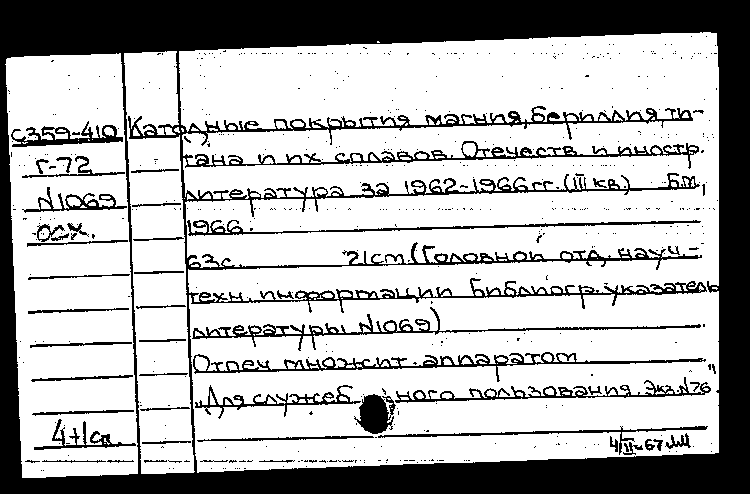 с359-410 Катодные покрытия магния, бериллия, ти-
г-72 тана и их сплавов. Отечеств. и иностр.
N1069 литература за 1962-1966 гг. (III кв.) Б.м.,
осх. 1966.
63 с. 21 см. (Головной отд. науч.-
техн. информации Библиогр. указатель
литературы N1069)
Отпеч. множит. аппаратом
"Для служебного пользования. Экз. N 76".
4+1сд.
4/II-67